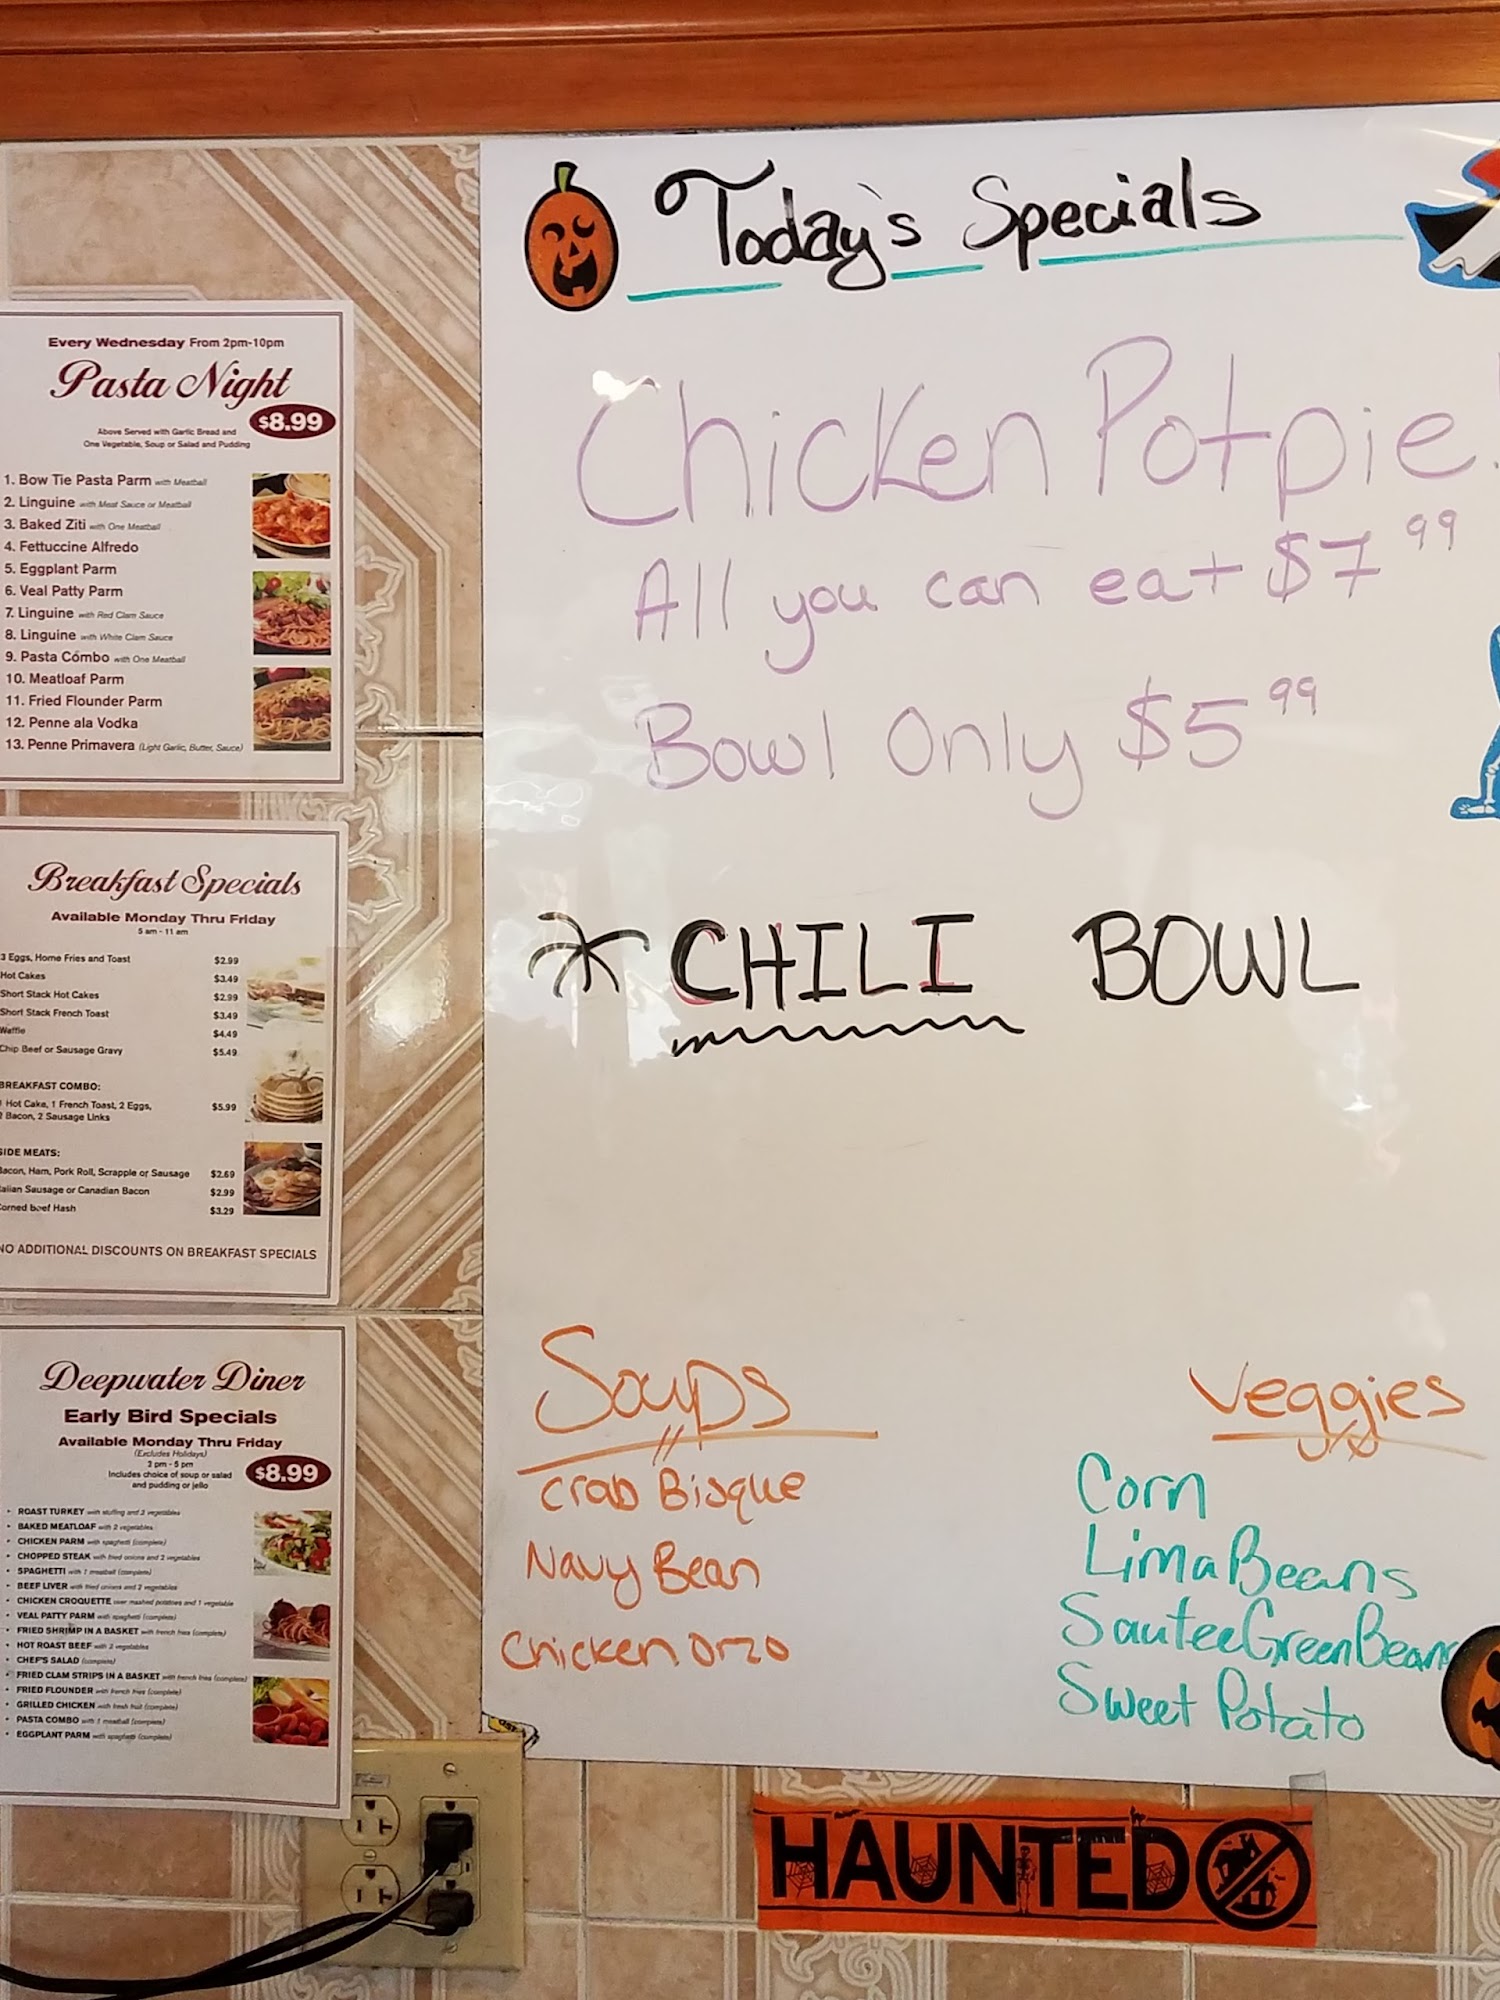 Today's Specials
Chicken Potpie
All you can eat $7.99
Bowl Only $5.99
CHILI BOWL
Soups
Crab Bisque
Navy Bean
Chicken Orzo
Veggies
Corn
Lima Beans
Sautee Green Beans
Sweet Potato
HAUNTED
Every Wednesday From 2pm-10pm
Pasta Night
$8.99
Above Served with Garlic Bread and
One Vegetable, Soup or Salad and Pudding
1. Bow Tie Pasta Parm with Meatball
2. Linguine with Meat Sauce or Meatball
3. Baked Ziti with One Meatball
4. Fettuccine Alfredo
5. Eggplant Parm
6. Veal Patty Parm
7. Linguine with Red Clam Sauce
8. Linguine with White Clam Sauce
9. Pasta Combo with One Meatball
10. Meatloaf Parm
11. Fried Flounder Parm
12. Penne ala Vodka
13. Penne Primavera (Light Garlic, Butter, Sauce)
Breakfast Specials
Available Monday Thru Friday
5 am - 11 am
3 Eggs, Home Fries and Toast $2.99
Hot Cakes $3.49
Short Stack Hot Cakes $2.99
Short Stack French Toast $3.49
Waffle $4.49
Chip Beef or Sausage Gravy $5.49
BREAKFAST COMBO:
1 Hot Cake, 1 French Toast, 2 Eggs, $5.99
2 Bacon, 2 Sausage Links
SIDE MEATS:
Bacon, Ham, Pork Roll, Scrapple or Sausage $2.69
Italian Sausage or Canadian Bacon $2.99
Corned beef Hash $3.29
NO ADDITIONAL DISCOUNTS ON BREAKFAST SPECIALS
Deepwater Diner
Early Bird Specials
Available Monday Thru Friday
(Excludes Holidays)
2 pm - 5 pm
Includes choice of soup or salad
and pudding or jello
$8.99
• ROAST TURKEY with stuffing and 2 vegetables
• BAKED MEATLOAF with 2 vegetables
• CHICKEN PARM with spaghetti (complete)
• CHOPPED STEAK with fried onions and 2 vegetables
• SPAGHETTI with 1 meatball (complete)
• BEEF LIVER with fried onions and 2 vegetables
• CHICKEN CROQUETTE over mashed potatoes and 1 vegetable
• VEAL PATTY PARM with spaghetti (complete)
• FRIED SHRIMP IN A BASKET with french fries (complete)
• HOT ROAST BEEF with 2 vegetables
• CHEF'S SALAD (complete)
• FRIED CLAM STRIPS IN A BASKET with french fries (complete)
• FRIED FLOUNDER with french fries (complete)
• GRILLED CHICKEN with fresh fruit (complete)
• PASTA COMBO with 1 meatball (complete)
• EGGPLANT PARM with spaghetti (complete)